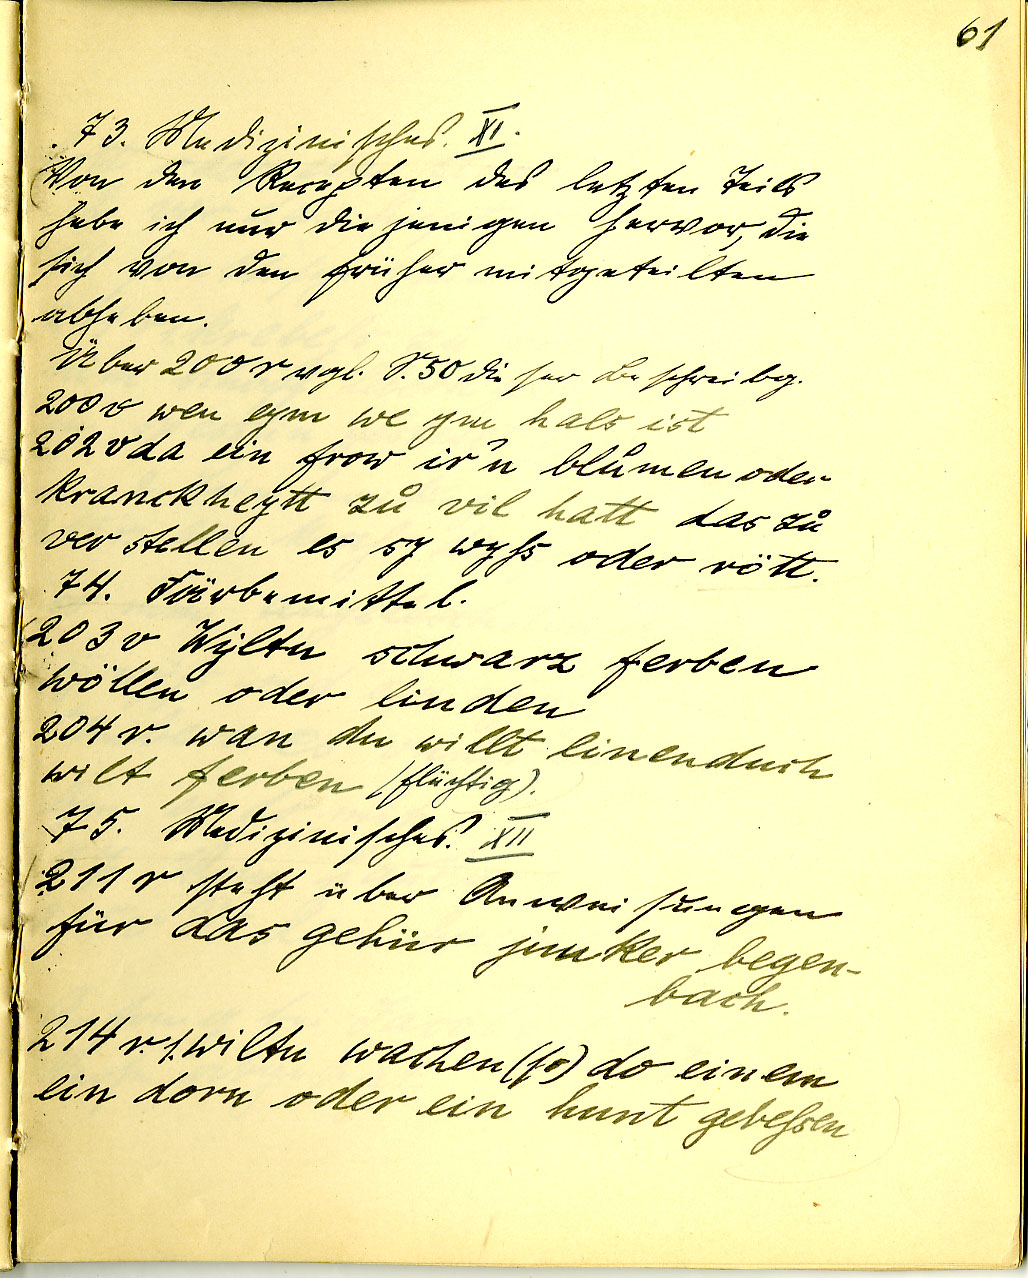 61
73. Medizinisches. XI.
Von den Recepten des letzten Teils
hebe ich nur diejenigen hervor, die
sich von den früher mitgeteilten
abheben.
Über 200r vgl. S. 50 dieser Beschreibg.
200v wen eym we ym hals ist
202v da ein frow ir'n blůmen oder
kranckheytt zů vil hatt das zů
verstellen es sy wyss oder rött.
74. Färbemittel.
203v Wyltu schwarz ferben
wöllen oder linden
204r. wan du willt linenduch
wilt ferben (flüchtig).
75. Medizinisches. XII
211r steht über Anweisungen
für das gehür junker begen-
bach.
214r. wiltu wachen (so) do einem
ein dorn oder ein hunt gebessen